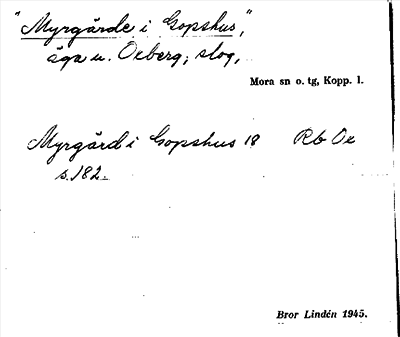 "Myrgärde i Gopshus,"
äga u. Oxberg; slog,
Mora sn o. tg, Kopp. l.
Myrgärd i Gopshus 18 Rb Oe
s. 182.
Bror Lindén 1945.